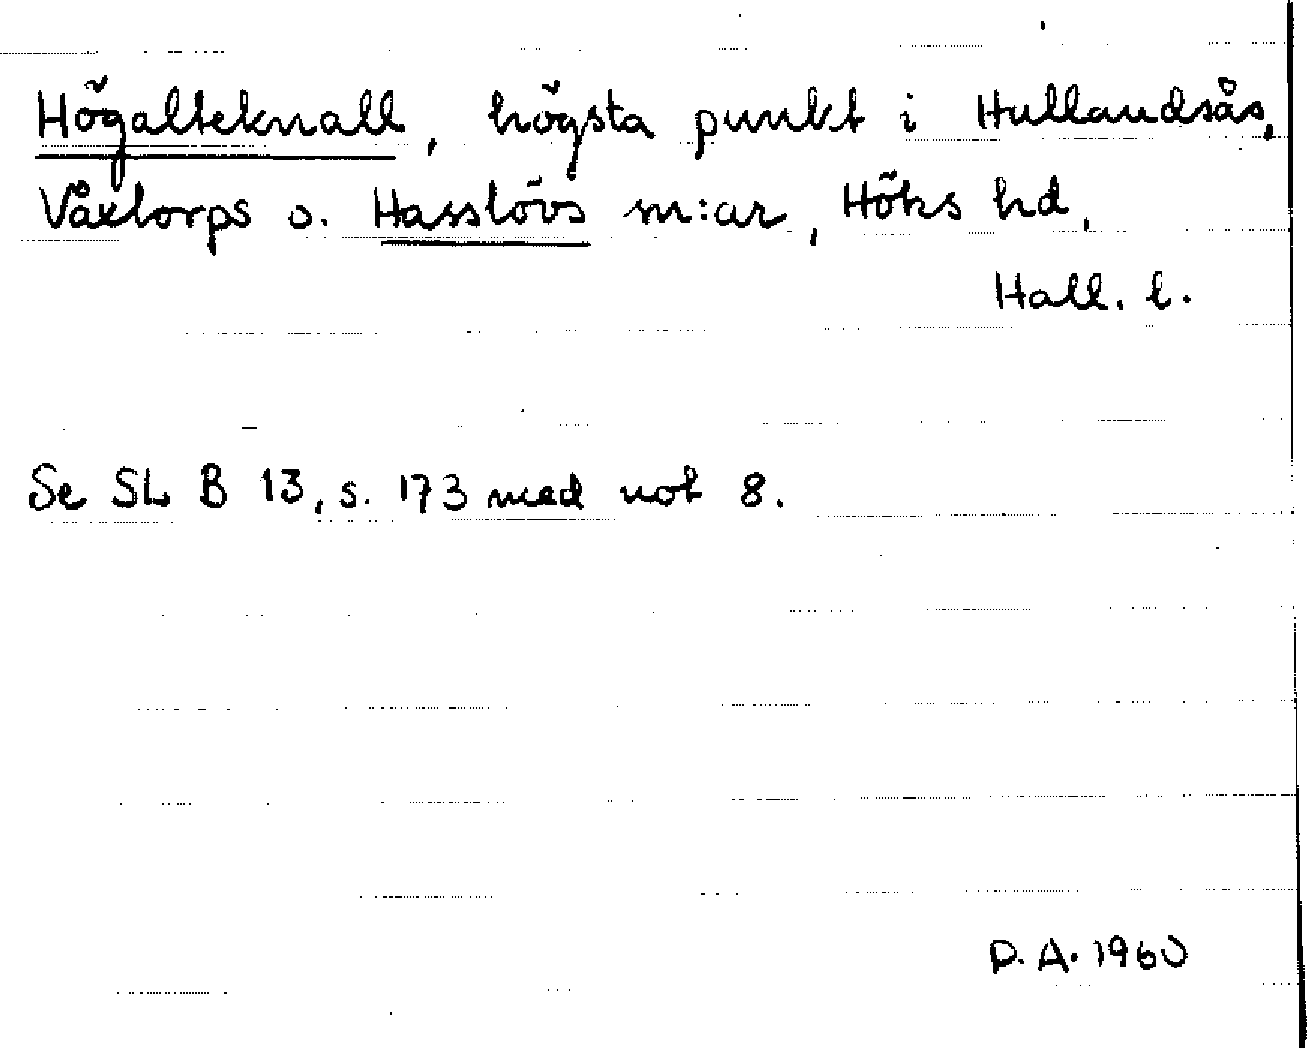 Högalteknall, högsta punkt i Hallandsås,
Våxtorps o. Hasslövs m:ar, Höks hd,
Hall. l.
Se SL B 13, s. 173 med not 8.
D. A. 1960